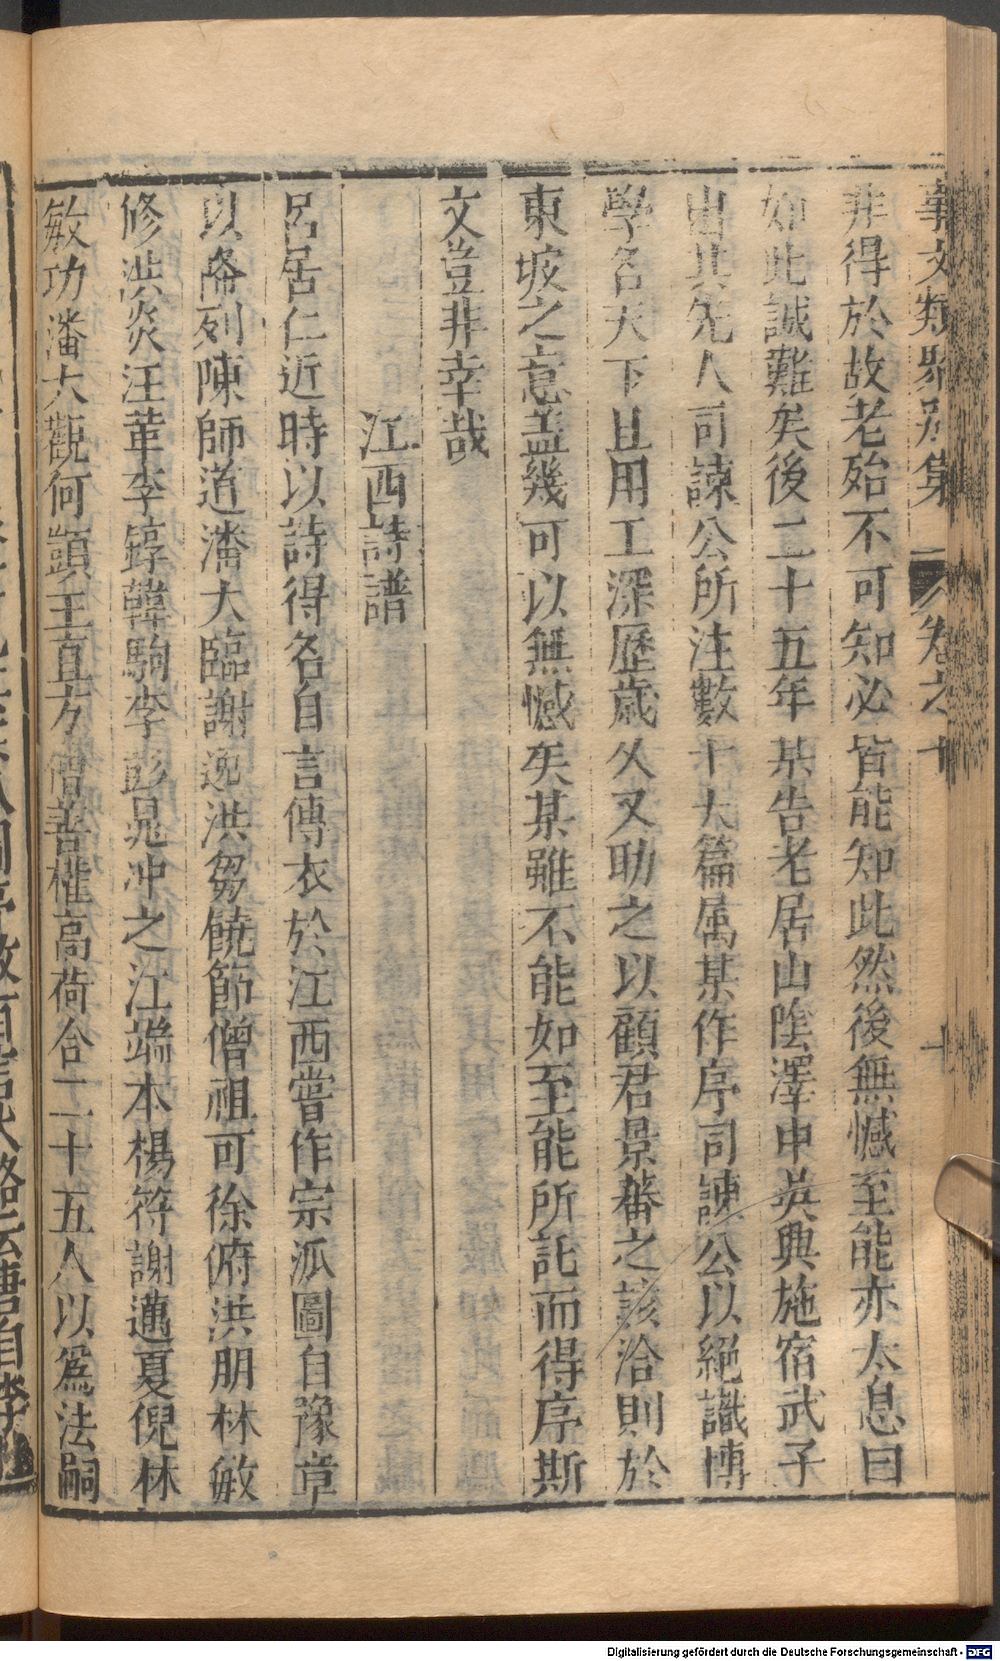 事文類聚別集 卷之十
非得於故老殆不可知必皆能知此然後無憾至能亦太息曰
如此誠難矣後二十五年某告老居山陰澤中吳興施宿武子
出其先人司諫公所注數十大篇属某作序司諫公以絕識博
學名天下且用工深歷歲久又助之以顧君景蕃之該洽則於
東坡之意盖幾可以無憾矣某雖不能如至能所託而得序斯
文豈非幸哉
江西詩譜
呂居仁近時以詩得名自言傳衣於江西嘗作宗派圖自豫章
以降列陳師道潘大臨謝逸洪芻饒節僧祖可徐俯洪朋林敏
修洪炎汪革李錞韓駒李彭晁冲之江端本楊符謝薖夏倪林
敏功潘大觀何顗王直方僧善權高荷合二十五人以為法嗣
Digitalisierung gefördert durch die Deutsche Forschungsgemeinschaft - DFG